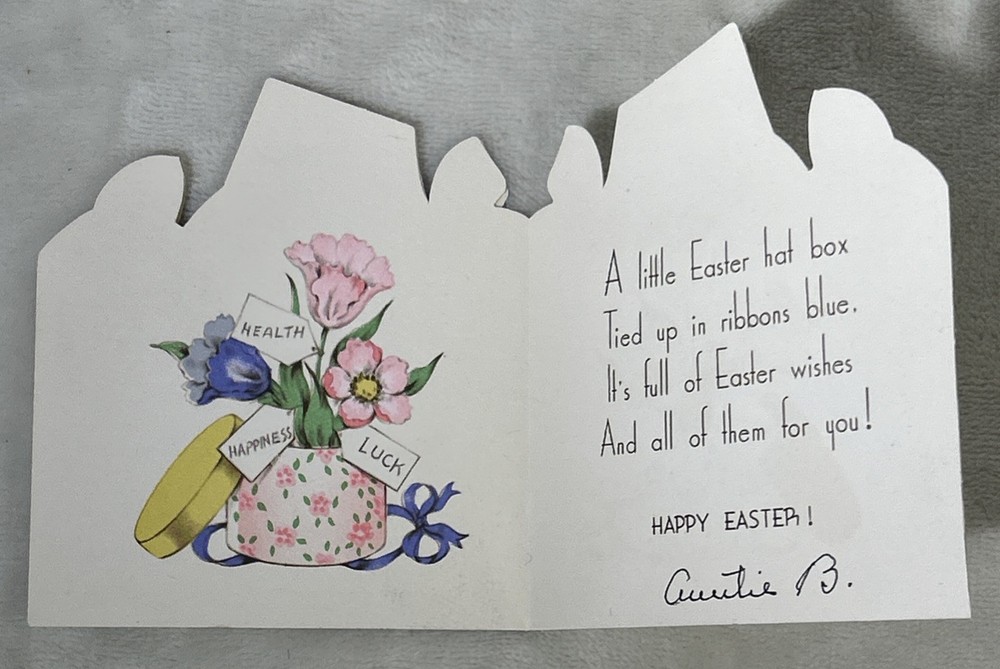 HEALTH
HAPPINESS
LUCK
A little Easter hat box
Tied up in ribbons blue.
It's full of Easter wishes
And all of them for you!
HAPPY EASTER!
Auntie B.